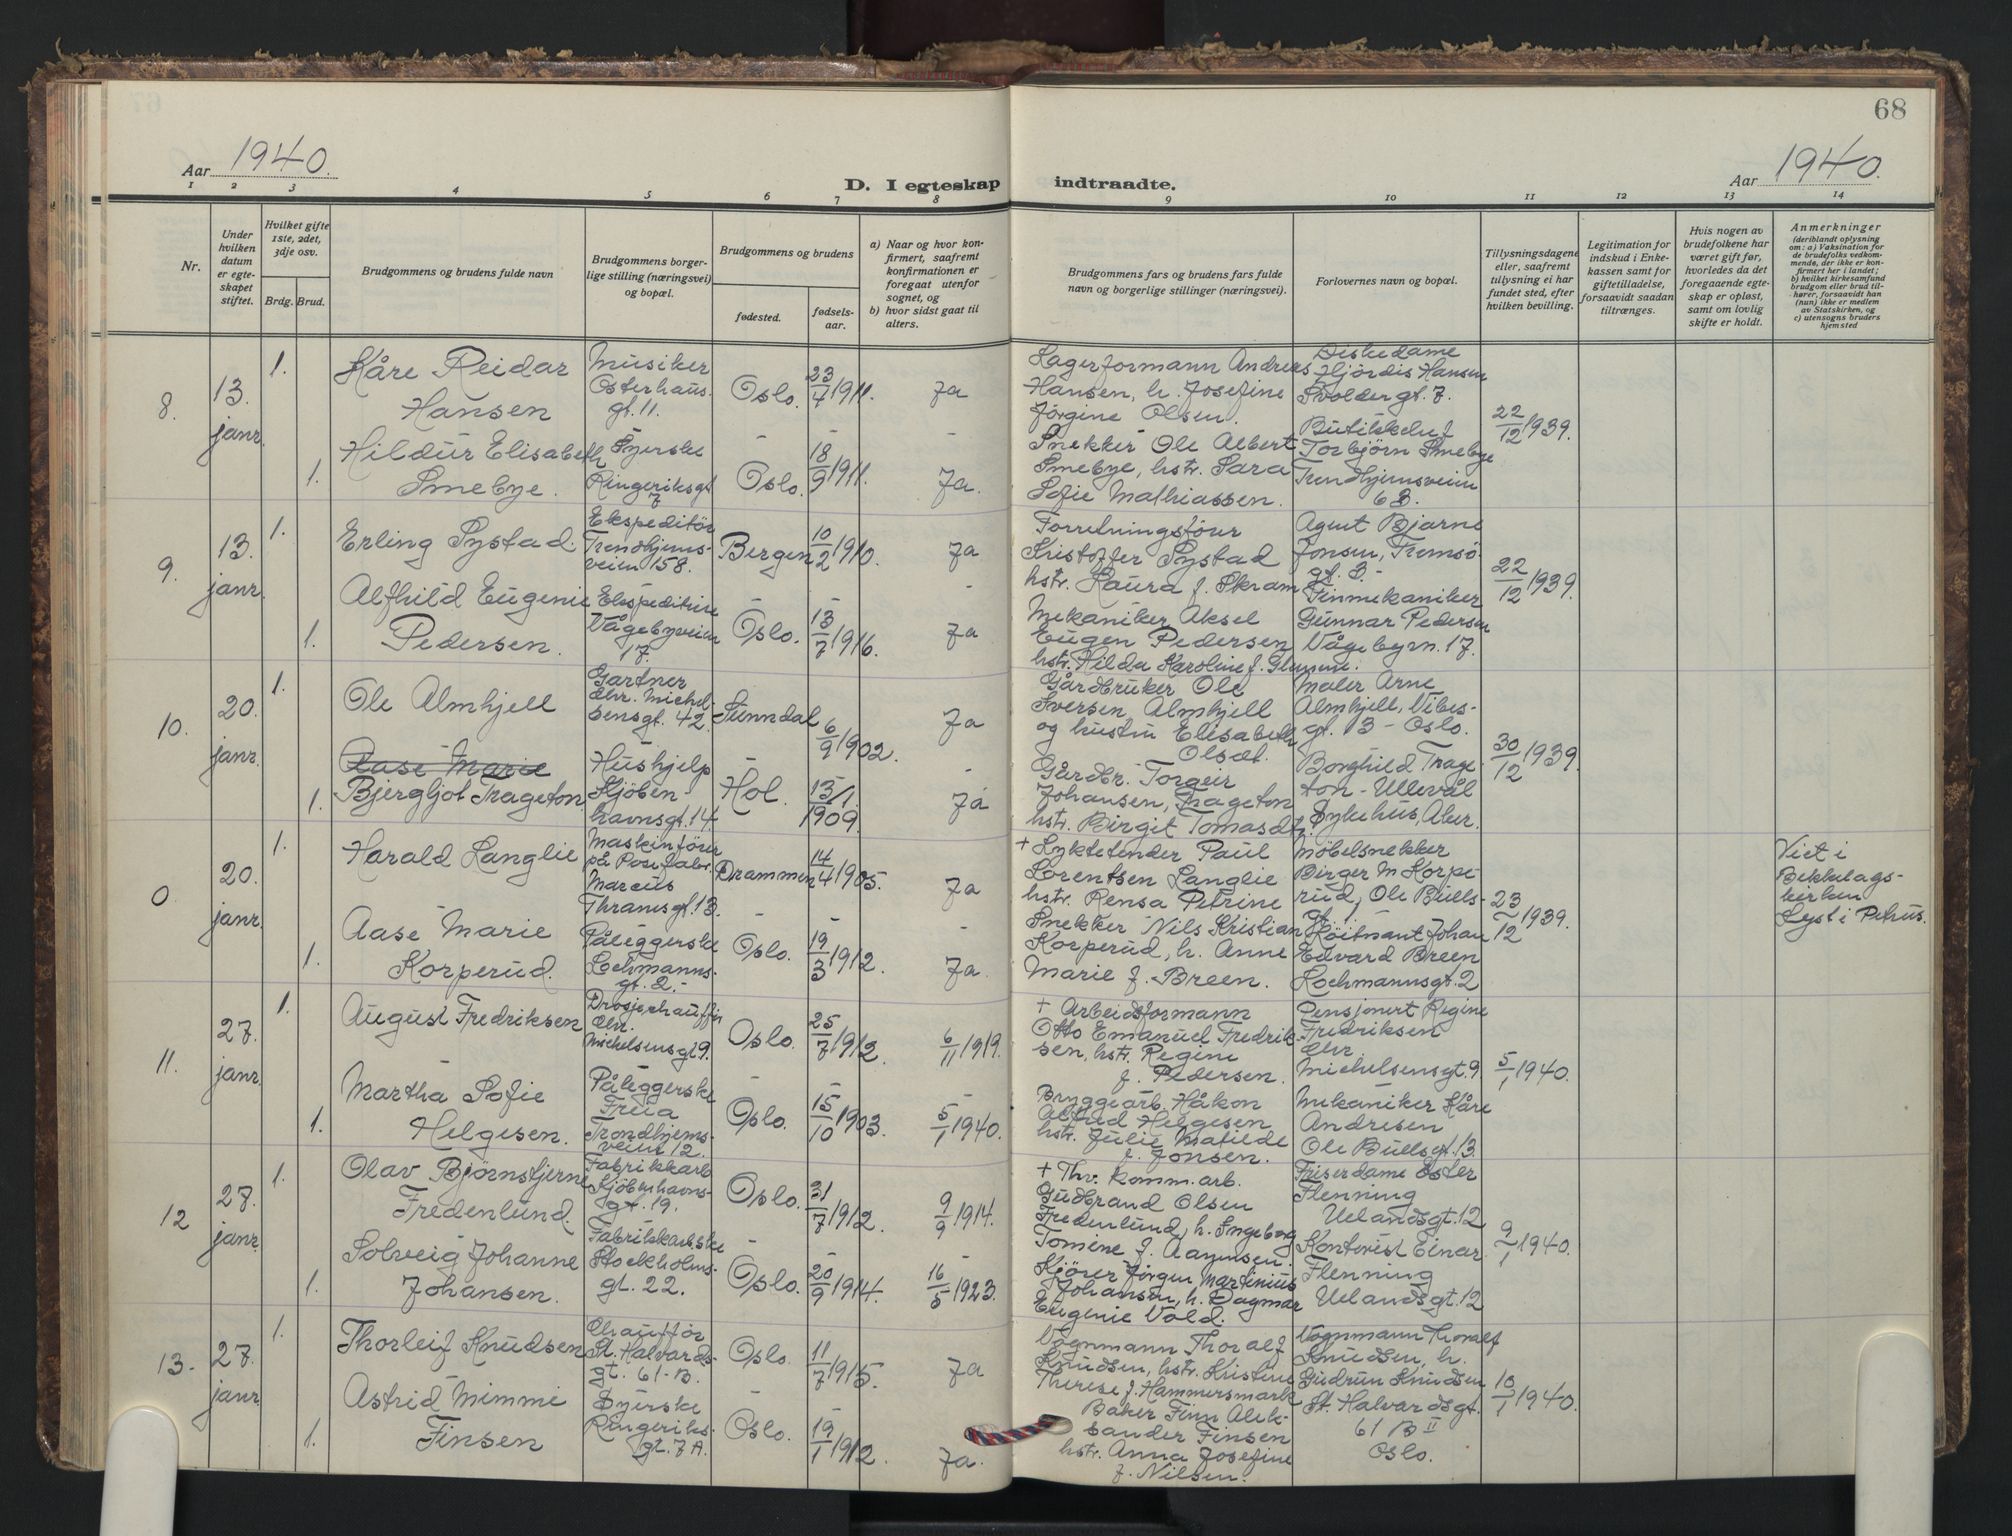 68
Aar 1940.
D. I egteskap indtraadte.
Aar 1940.
1 2 3 4 5 6 7 8 9 10 11 12 13 14
Nr.
Under
hvilken
datum
er egte-
skapet
stiftet.
Hvilket gifte
1ste, 2det,
3dje osv.
Brdg. Brud.
Brudgommens og brudens fulde navn
Brudgommens borger-
lige stilling (næringsvei)
og bopæl.
Brudgommens og brudens
fødested.
fødsels-
aar.
a) Naar og hvor kon-
firmert, saafremt
konfirmationen er
foregaat utenfor
sognet, og
b) hvor sidst gaat til
alters.
Brudgommens fars og brudens fars fulde
navn og borgerlige stillinger (næringsvei).
Forlovernes navn og bopæl.
Tillysningsdagene
eller, saafremt
tilysning ei har
fundet sted, efter
hvilken bevilling.
Legitimation for
indskud i Enke-
kassen samt for
giftetilladelse,
forsaavidt saadan
tiltrænges.
Hvis nogen av
brudefolkene har
været gift før,
hvorledes da det
foregaaende egte-
skap er opløst,
samt om lovlig
skifte er holdt.
Anmerkninger
(deriblandt oplysning
om: a) Vaksination for
de brudefolks vedkom-
mende, der ikke er kon-
firmert her i landet;
b) hvilket kirkesamfund
brudgom eller brud til-
hører, forsaavidt han
(hun) ikke er medlem
av Statskirken, og
c) utensogns bruders
hjemsted
8.
13.
janr.
1.
Kåre Reidar
Hansen
Musiker
Osterhaus-
gt. 11.
Oslo.
23/4 1911.
Ja
Lagerformann Andreas
Hansen, h. Josefine
Jørgine Olsen.
Diskedame
Hjördis Hansen
Svoldergt. 7.
22/12 1939.
1.
Hildur Elisabeth
Smebye.
Syerske
Ringeriksgt
7
Oslo.
18/9 1911.
Ja.
Snekker Ole Albert
Smebye, hstr. Sara
Sofie Mathiassen.
Butikkchef
Torbjørn Smebye
Trondhjemsveien
63.
9.
13.
janr.
1.
Erling Systad.
Ekspeditør
Trondhjems-
veien 158.
Bergen
10/2 1910.
Ja
Forretningsfører
Kristoffer Systad
hstr. Laura f. Skram
Agent Bjarne
Jonsen, Tromsö-
gt. 3.
22/12 1939.
1.
Alfhild Eugenie
Pedersen.
Ekspeditrise
Vågebyveien
17.
Oslo.
13/7 1916.
Ja
Mekaniker Aksel
Eugen Pedersen
hstr. Hilda Karoline f.
Finmekaniker
Gunnar Pedersen
Vågebyvn. 17.
10.
20.
janr.
1.
Ole Almhjell
Gartner
Chr. Michel-
sensgt. 42.
Sunndal
6/9 1902.
Ja
Gårdbruker Ole
Iversen Almhjell
og hustru Elisabeth
Olsdt.
Maler Arne
Almhjell, Vibes-
gt. 13 - Oslo.
30/12 1939.
Aase Marie
1.
Bjergljot Trageton
Hushjelp
Kjöben-
havnsgt. 14.
Hol.
13/1.
1909.
Ja
Gårdbr. Torgeir
Johansen, Trageton
hstr. Birgit Tomasdtr.
Borghild Trage-
ton - Ullevål
Sykehus, Aker.
0
20.
janr.
1.
Harald Langlie
Maskinfører
på Posefabr.
Marcus
Thranesgt. 13.
Drammen
14/4 1905.
Ja
+ Lyktetender Paul
Lorentsen Langlie
hstr. Rensa Petrine
Möbelsnekker
Birger M Korpe-
rud, Ole Bulls-
gt. 1.
23/12 1939.
Viet i
Bekkelags-
kirken
Lyst i Petrus.
1.
Aase Marie
Korperud.
Påleggerske
Lochmanns-
gt. 2.-
Oslo.
19/3 1912.
Ja.
Snekker Nils Kristian
Korperud, h. Anne
Marie f. Breen.
Löitnant Johan
Edvard Breen
Lochmannsgt. 2
11.
27.
janr
1.
August Fredriksen
Drosjechauffør
Chr.
Michelsensgt 9.
Oslo.
25/7 1912.
6/11 1919.
+ Arbeidsformann
Otto Emanuel Fredrik-
sen, hstr. Regine
f. Pedersen.
Pensjonert Regine
Fredriksen
Chr.
Michelsensgt. 9
5/1 1940.
1.
Martha Sofie
Helgesen.
Påleggerske
Freia
Trondhjems-
veien 12.
Oslo.
15/10 1903.
5/1 1940.
Bryggearb. Håkon
Alfred Helgesen
hstr. Julie Matilde
f. Jonsen.
Mekaniker Kåre
Andresen
Ole Bullsgt. 13.
12
27.
janr.
1.
Olav Björnstjerne
Fredenlund.
Fabrikkarb
Kjöbenhavns-
gt. 19.
Oslo.
31/7 1912.
9/9 1914.
+ Thv. komm.arb.
Gudbrand Olsen
Fredenlund, h. Ingeborg
Tomine f. Aamunsen.
Friserdame Ester
Flenning
Uelandsgt. 12
9/1 1940.
1.
Solveig Johanne
Johansen.
Fabrikkarb.ske
Stockholms-
gt. 22.
Oslo.
20/9 1914.
16/5 1923.
Kjører Jörgen Martinius
Johansen, h. Dagmar
Eugenie Vold.
Kontorist Einar
Flenning
Uelandsgt. 12
13.
27.
janr
1.
Thorleif Knudsen
Chauffør
St. Halvards-
gt. 61-B.
Oslo.
11/7 1915.
Ja
Vognmann Thoralf
Knudsen, hstr. Kristine
Therese f. Hammersmark
Vognmann Thoralf
Knudsen, h.
Gudrun Knudsen
St. Halvardsgt.
61 B II
Oslo.
10/1 1940.
1.
Astrid Mimmi
Finsen
Syerske
Ringeriks-
gt. 7 A.
Oslo.
19/1 1912.
Ja.
Baker Finn Alek-
sander Finsen
hstr. Anna Josefine
f. Nilsen.